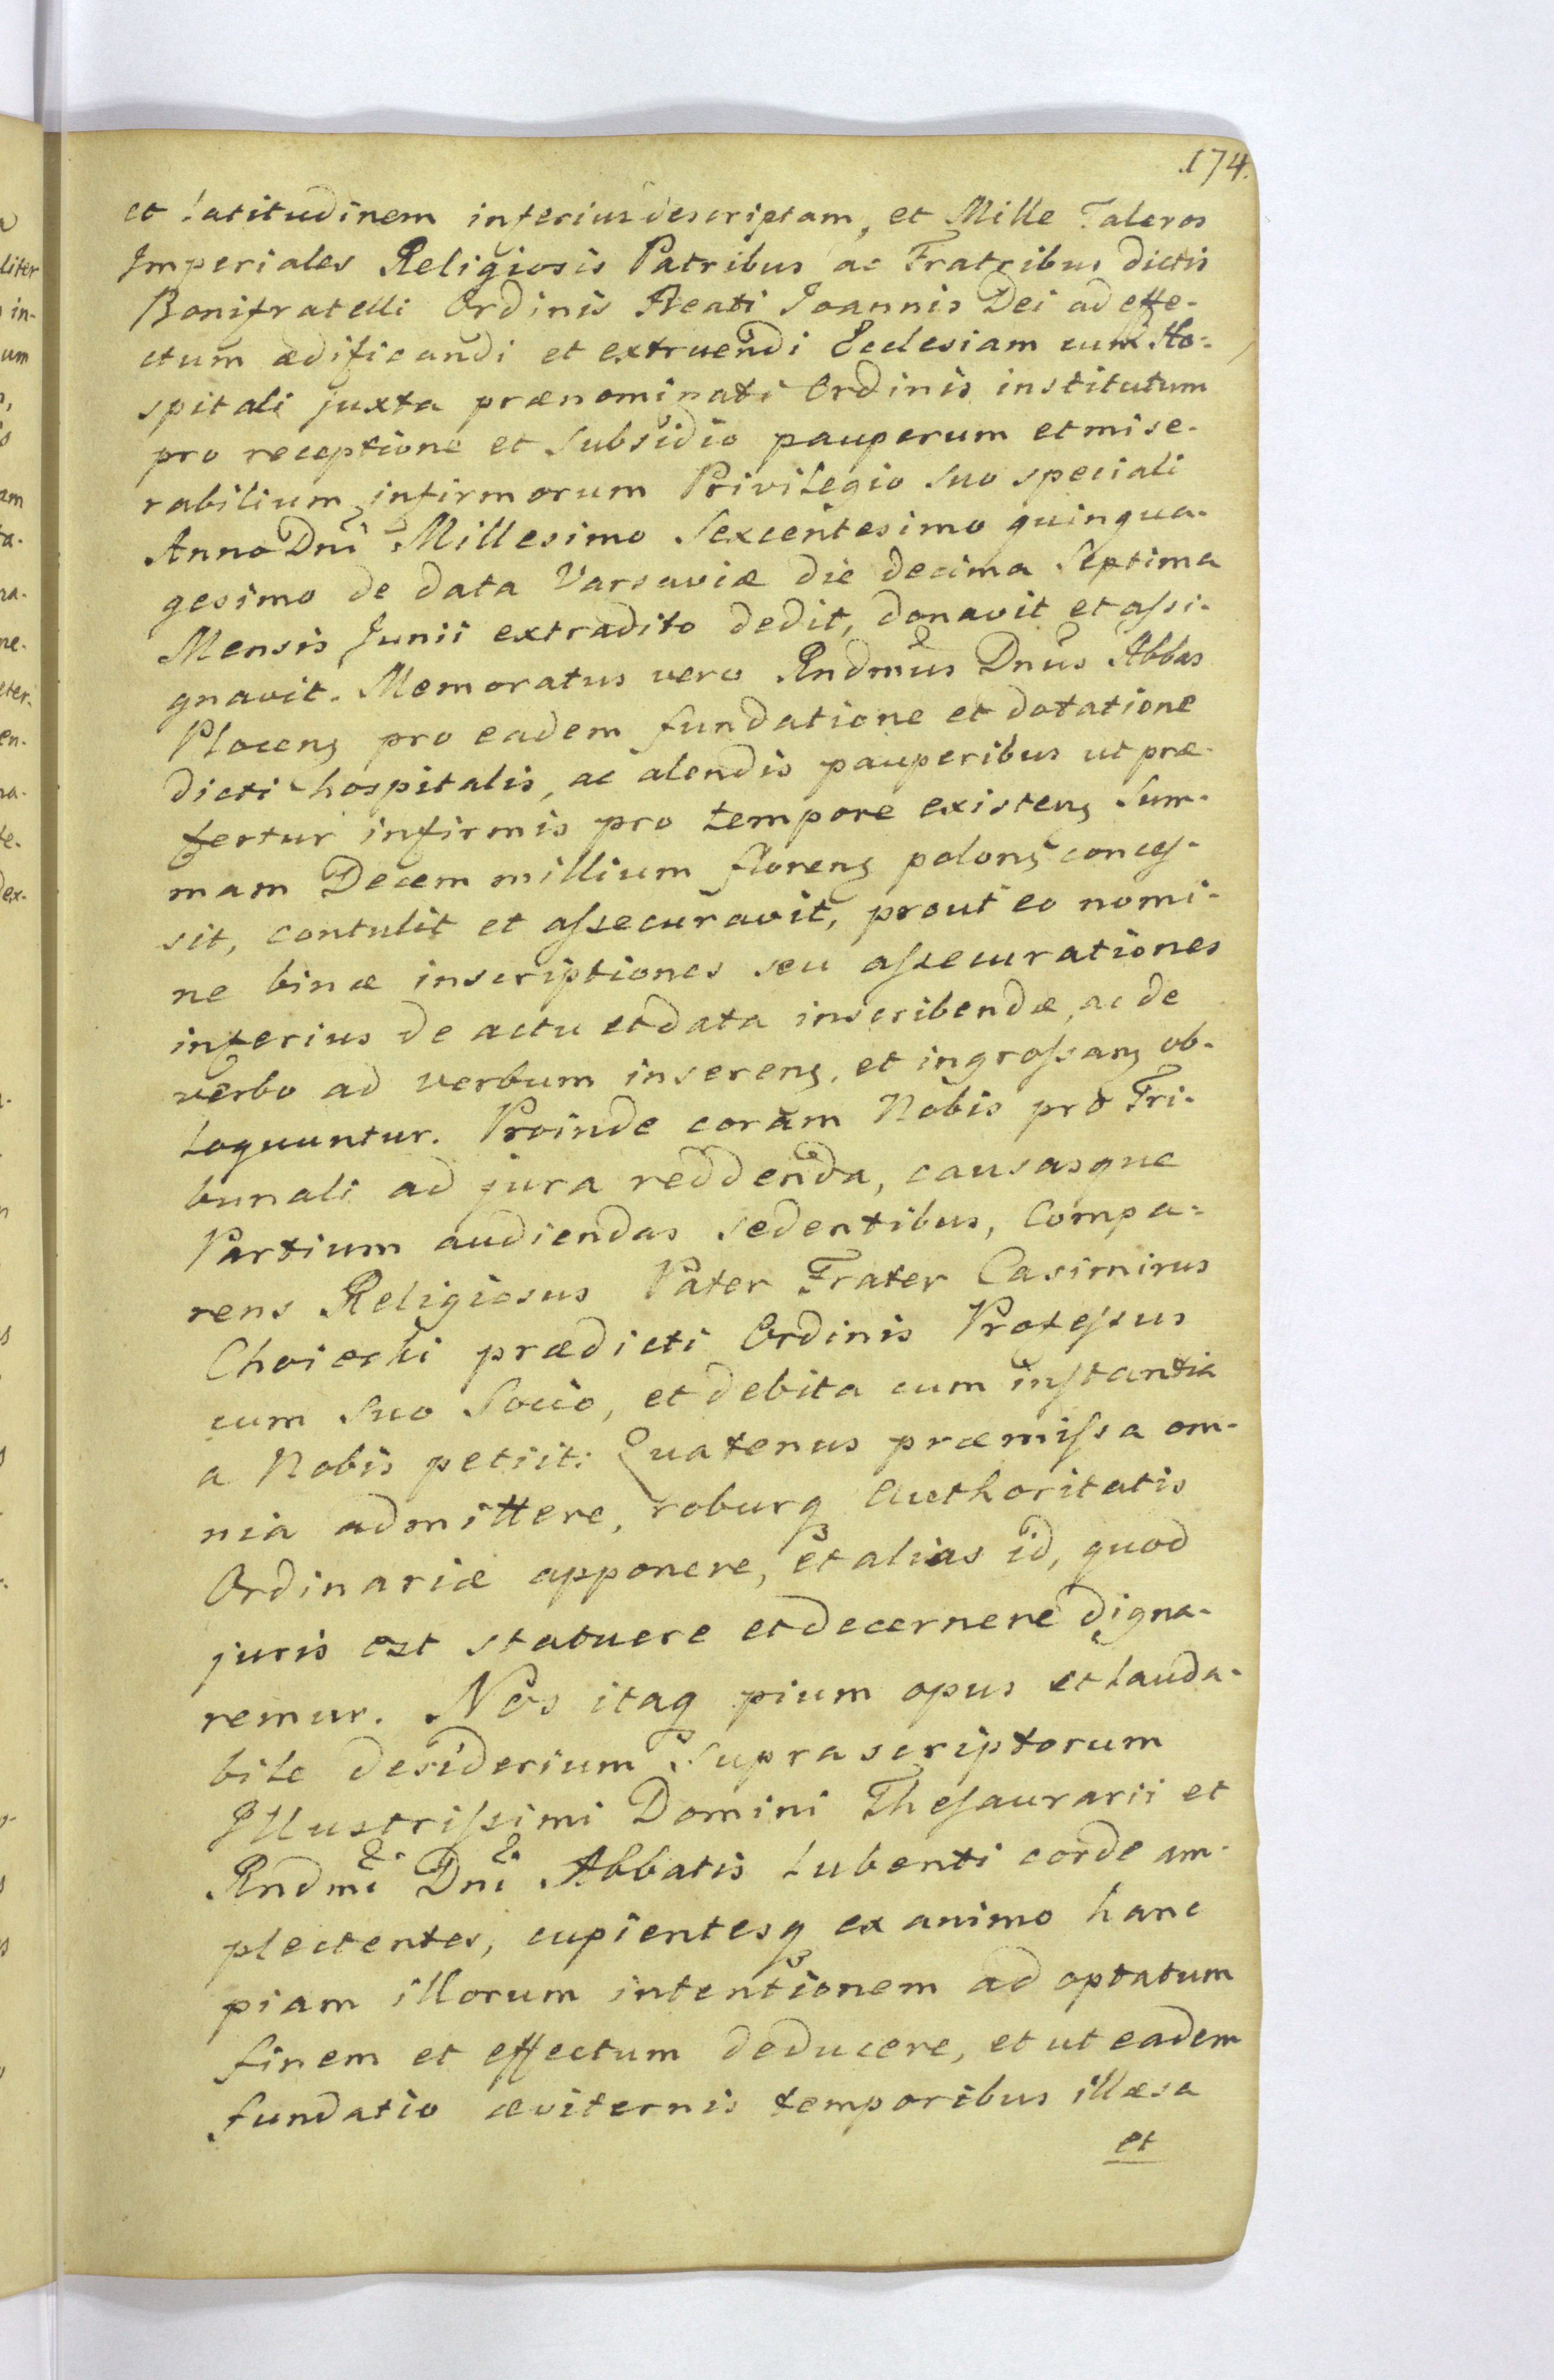 174.
et latitudinem inferius descriptam, et Mille Taleros
Imperiales Religiosis Patribus ac Fratribus dictis
Bonifratelli Ordinis Beati Joannis Dei ad effe-
ctum ædificandi et extruendi Ecclesiam cum Ho-
spitali juxta prænominati Ordinis institutum
pro receptione et Subsidio pauperum et mise-
rabilium infirmorum Privilegio suo speciali
Anno Dni Millesimo Sexcentesimo quinqua-
gesimo de data Varsaviæ die decima Septima
Mensis Junii extradito dedit, donavit et assi-
gnavit. Memoratus vero Rndmus Dnus Abbas
Plocenȝ pro eadem fundatione et dotatione
dicti hospitalis, ac alendis pauperibus ut præ-
fertur infirmis pro tempore existenȝ Sum-
mam Decem millium florenȝ polonȝ conces-
sit, contulit et assecuravit, prout eo nomi-
ne binæ inscriptiones seu assecurationes
inferius de actu et data inscribendæ, ac de
verbo ad verbum inserenȝ, et ingrossanȝ ob-
loquuntur. Proinde coram Nobis pro Tri-
bunali ad jura reddenda, causasque
Partium audiendas sedentibus, Compa-
rens Religiosus Pater Frater Casimirus
Choiecki prædicti Ordinis Professus
cum suo Socio, et debita cum instantia
a Nobis petiit: Quatenus præmissa om-
nia admittere, roburqȝ Authoritatis
Ordinariæ apponere, et alias id, quod
juris est statuere et decernere digna-
remur. Nos itaqȝ pium opus et lauda-
bile desiderium Suprascriptorum
Illustrissimi Domini Thesaurarii et
Rndmi Dni Abbatis lubenti corde am-
plectentes, cupientesqȝ ex animo hanc
piam illorum intentionem ad optatum
finem et effectum deducere, et ut eadem
fundatio æviternis temporibus illæsa
et